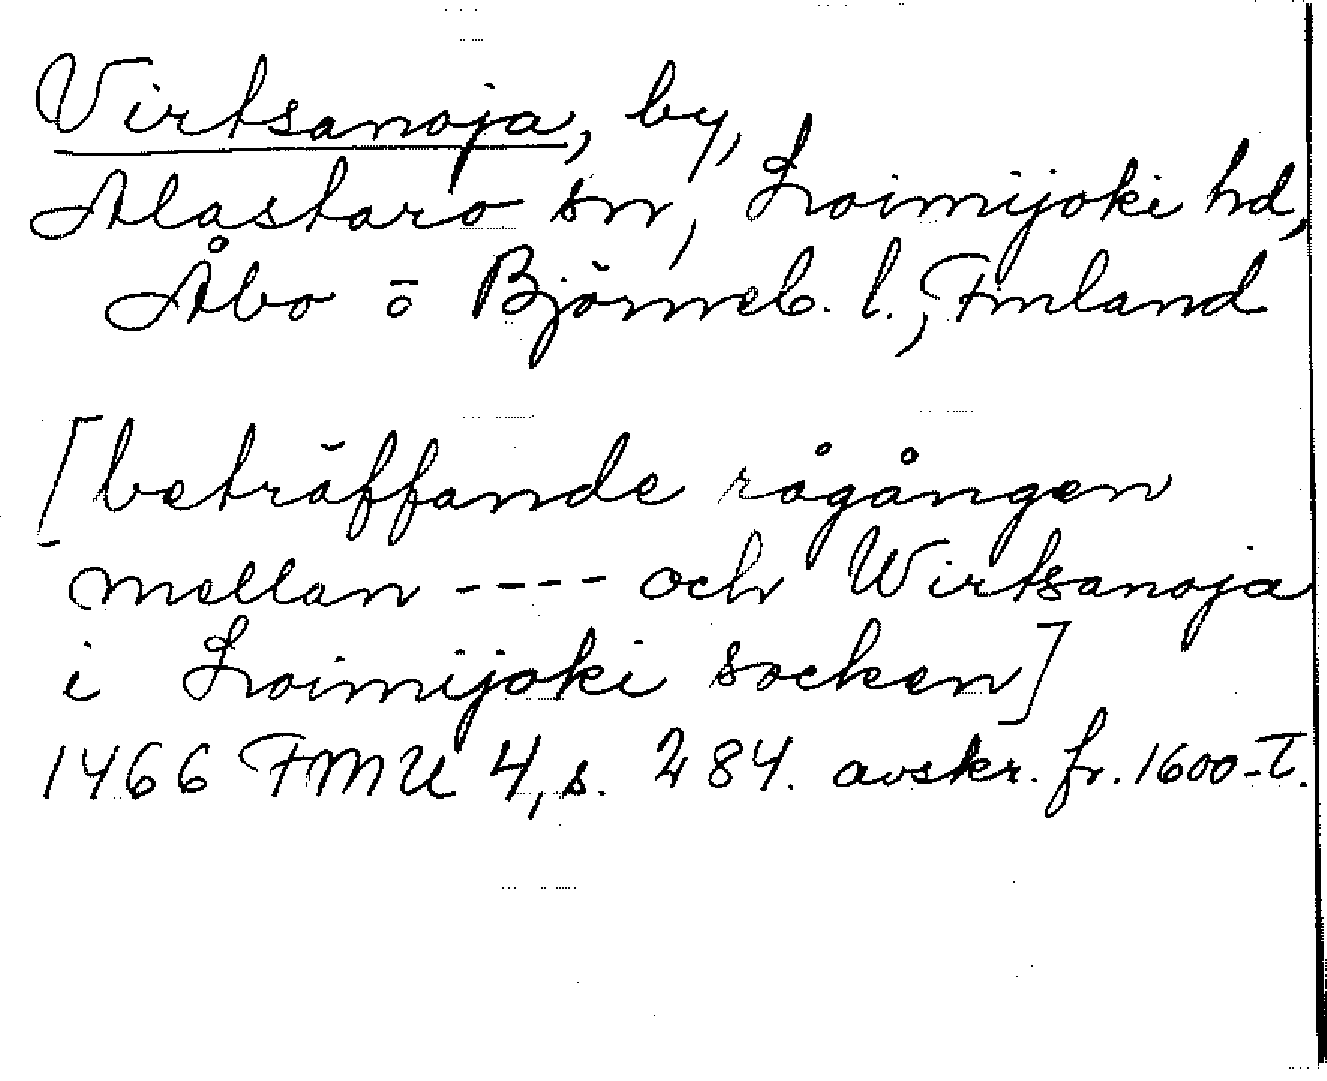 Virtsanoja, by,
Alastaro sn, Loimijoki hd,
Åbo o Björneb. l., Finland
[beträffande rågången
mellan ---- och Wirtsanoja
i Loimijoki socken]
1466 FMU 4, s. 284. avskr. fr. 1600-t.